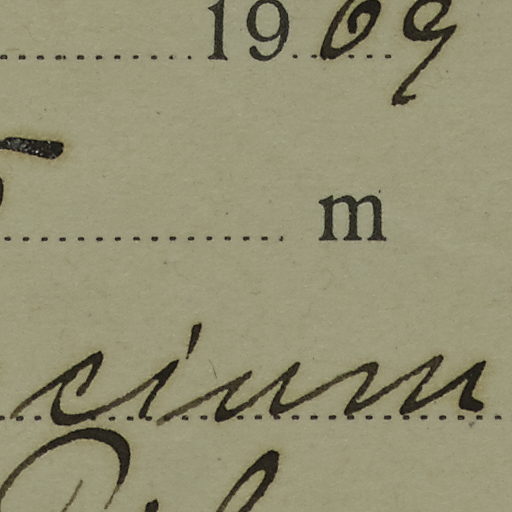 1909
m
cium